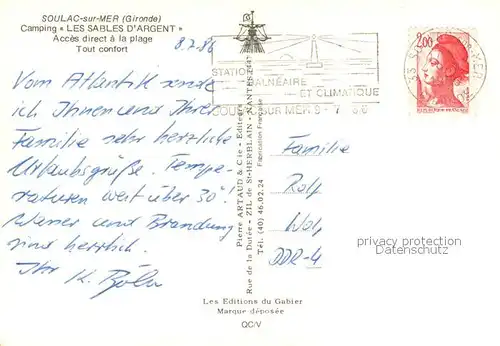 SOULAC-sur-MER (Gironde)
Camping « LES SABLES D'ARGENT »
Accès direct à la plage
Tout confort
8.7.86
Vom Atlantik sende
ich Ihnen und Ihrer
Familie sehr herzliche
Urlaubsgrüße. Tempe-
raturen weit über 30°!
Wasser und Brandung
sind herrlich.
Ihr K. Böhm
STATION
BALNÉAIRE
ET CLIMATIQUE
SUR MER
2,00
Pierre ARTAUD & Cie - Editeurs
Rue de la Dutée - ZIL de St-HERBLAIN - NANTES
Tél. (40) 46.02.24
Fabrication Française
Familie
Rolf
DDR-4
privacy protection
Datenschutz
Les Editions du Gabier
Marque déposée
QC/V